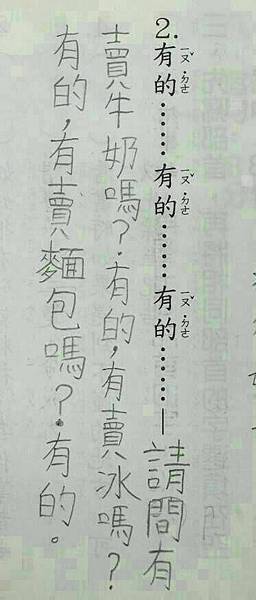 2.有的……有的……有的……—請問有
賣牛奶嗎?有的,有賣冰嗎?
有的,有賣麵包嗎?有的。